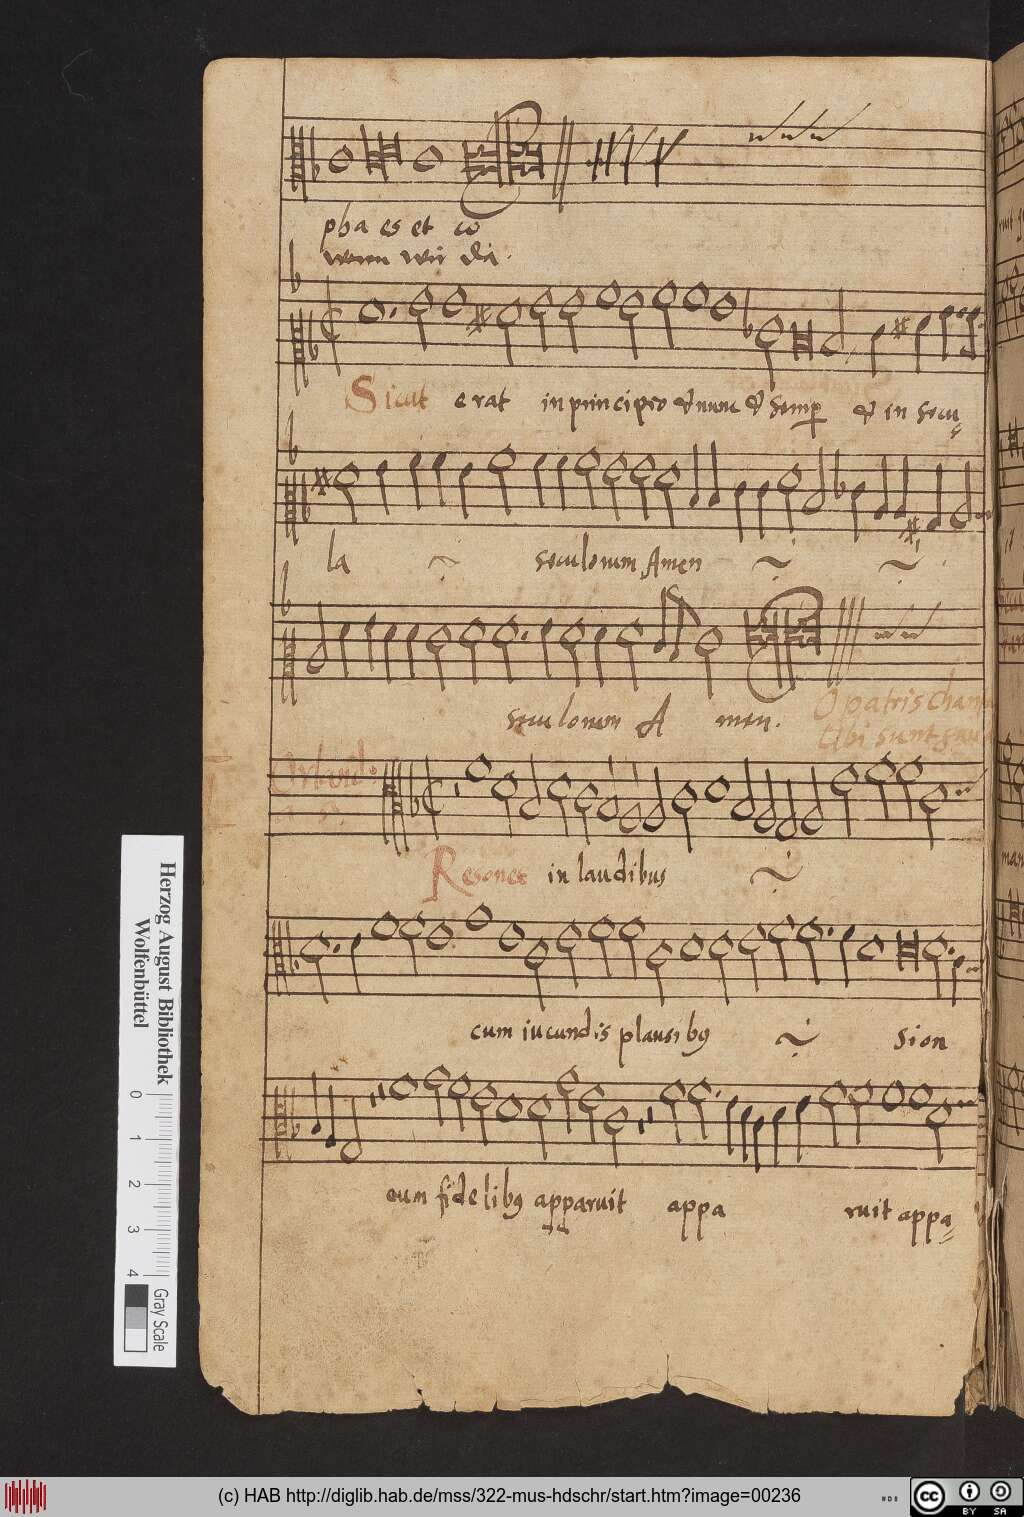 pha es et ω
wenn wir da.
Sicut erat in principio & nunc & semp & in secu
la seculorum Amen
seculorum A men.
O patris Chari
Ubi sunt gau
Orland:
5.
Resonet in laudibus
cum iucundis plausibq Sion
cum fidelibq apparuit appa ruit appa
Herzog August Bibliothek
Wolfenbüttel
0 1 2 3 4
Gray Scale
(c) HAB http://diglib.hab.de/mss/322-mus-hdschr/start.htm?image=00236
cc BY SA